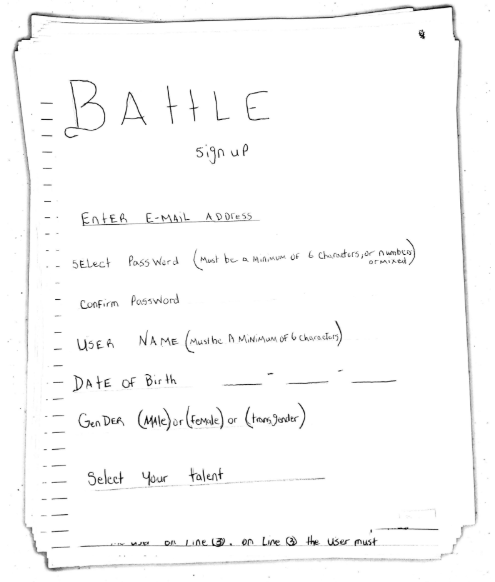 BAttLE
sign up
ENtER E-MAIL ADDRESS
SELect PassWord (Must be a Minimum OF 6 Characters, or numbers or mixed)
Confirm Password
USER NAME (Must be A MiNiMum of 6 Characters)
DAtE of Birth ____ - ____ - ____
GenDER (MAle) or (feMale) or (transgender)
Select Your talent
on Line (3). on Line (3) the User must